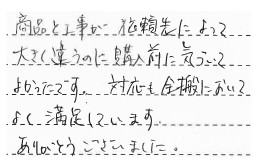 商品と工事が依頼先によって
大きく違うのに購入前に気づいて
よかったです。対応も全般において
よく満足しています。
ありがとうございました。